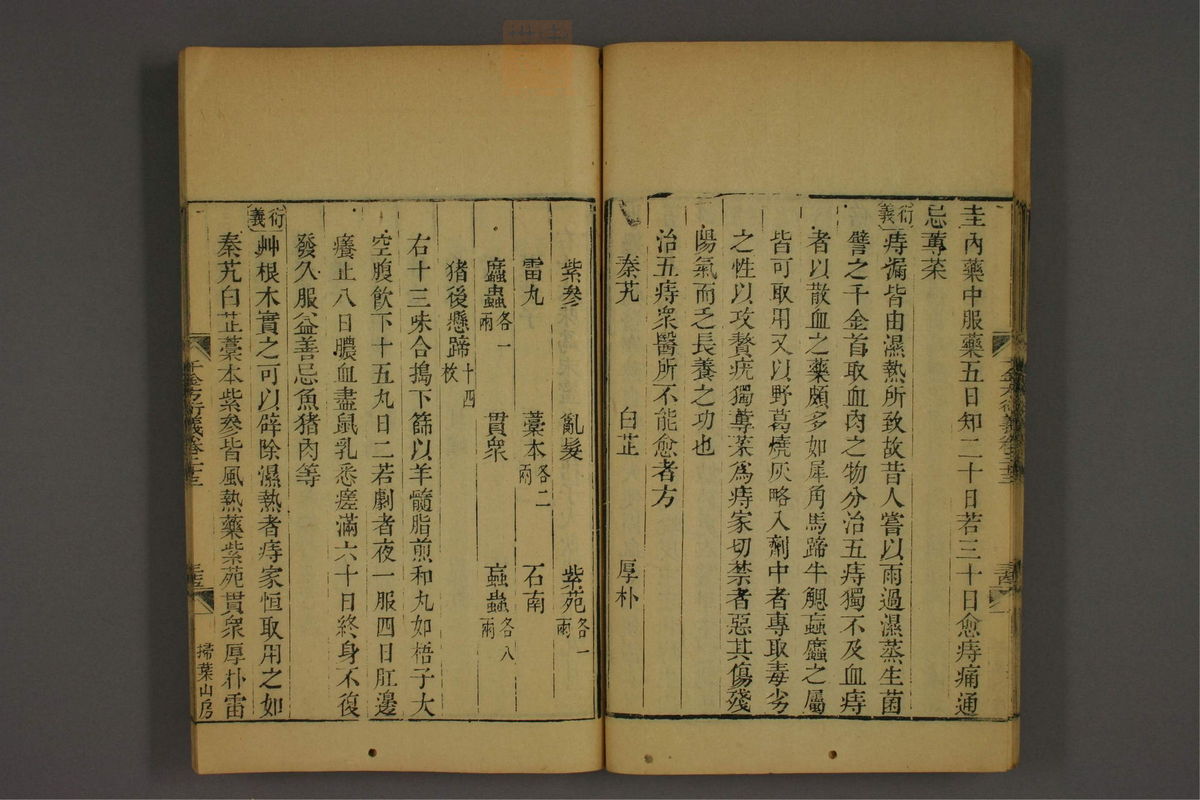 圭內藥中服藥五日知二十日若三十日愈痔痛通
忌蓴菜
衍義 痔漏皆由濕熱所致故昔人嘗以雨過濕蒸生菌
譬之千金首取血肉之物分治五痔獨不及血痔
者以散血之藥頗多如犀角馬蹄牛䚡䖟䗪之屬
皆可取用又以野葛燒灰略入劑中者專取毒劣
之性以攻贅疣獨蓴菜為痔家切禁者惡其傷殘
陽氣而乏長養之功也
治五痔衆醫所不能愈者方
秦艽 白芷 厚朴
紫參 亂髮 紫苑各一兩
雷丸 藁本各二兩 石南
䗪蟲各一兩 貫衆 䖟蟲各八兩
猪後懸蹄十四枚
右十三味合搗下篩以羊髓脂煎和丸如梧子大
空腹飲下十五丸日二若劇者夜一服四日肛邊
癢止八日膿血盡鼠乳悉瘥滿六十日終身不復
發久服益善忌魚猪肉等
衍義 艸根木實之可以辟除濕熱者痔家恒取用之如
秦艽白芷藁本紫參皆風熱藥紫苑貫衆厚朴雷
千金方衍義卷二十三
掃葉山房